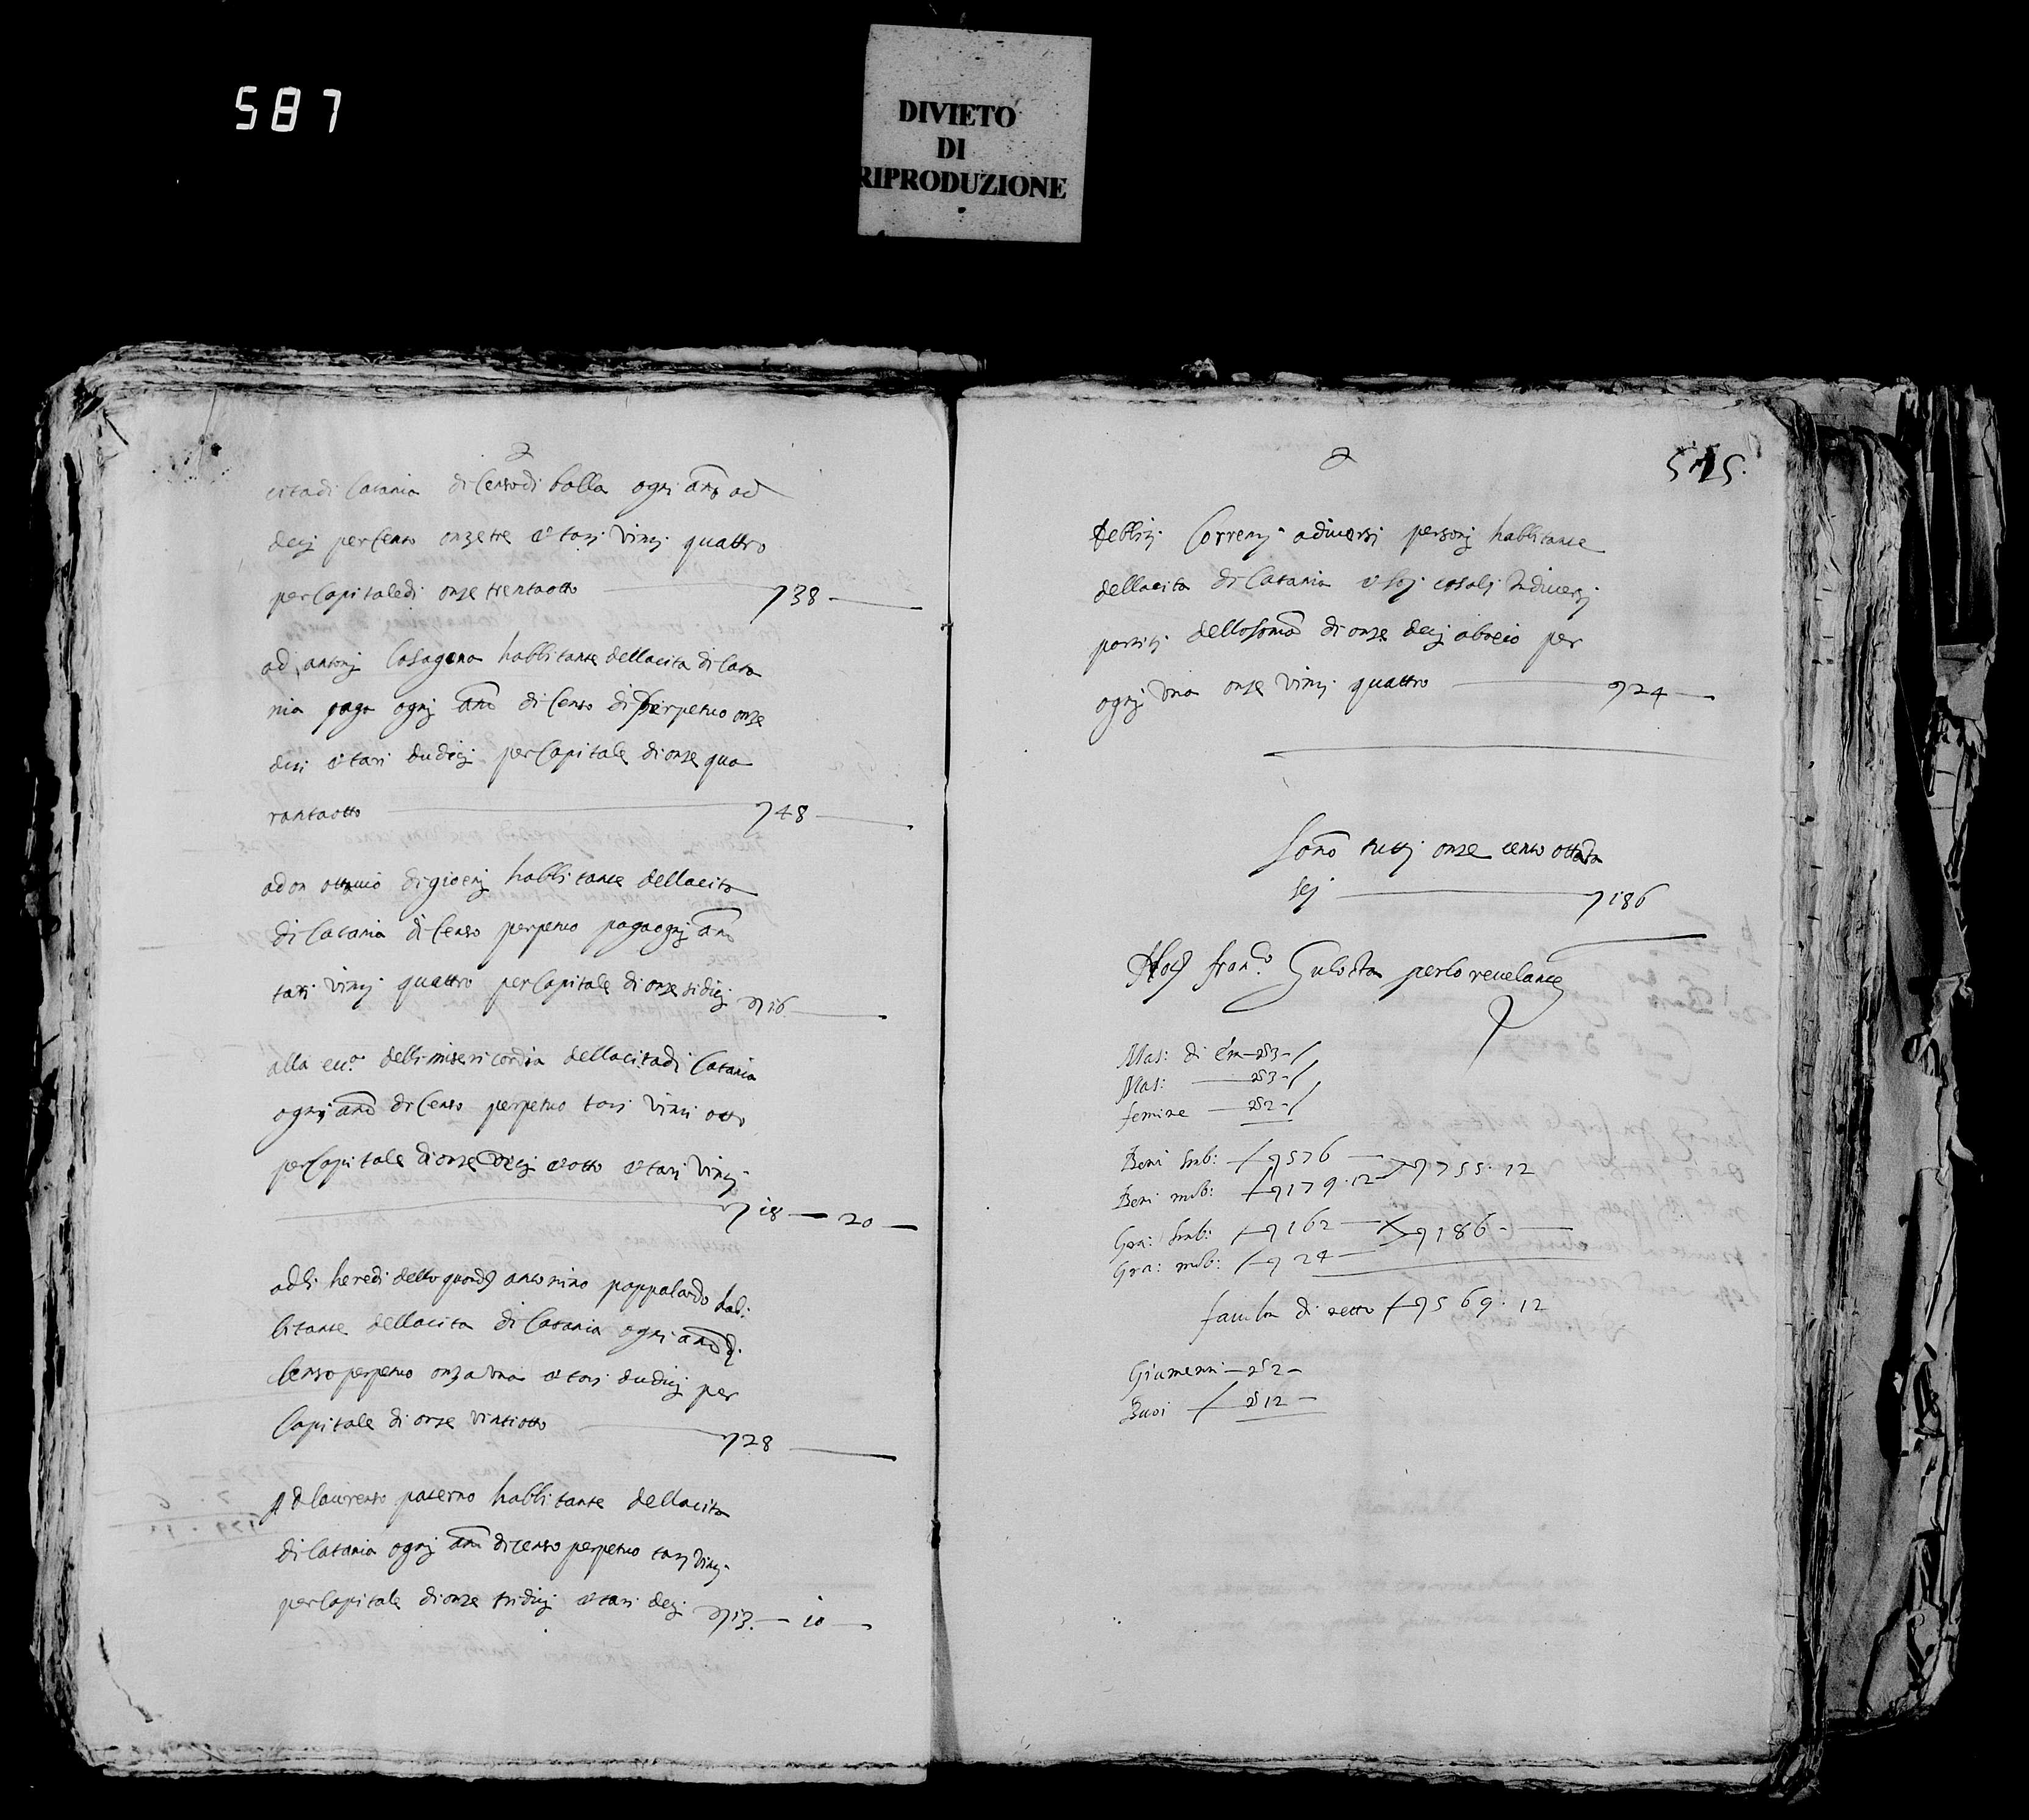 587
DIVIETO
DI
RIPRODUZIONE
cita di Catania di Censo di bolla ogni anno ad
decj per Cento onze tre et tarj vinti quattro
per Capitale di onze trentaotto 38
ad antonj Casagena habbitante della cita di Cata
nia paga ognj anno di Censo di perpetuo onze
dui et tari dudicj per Capitale di onze qua
rantaotto 48
a don ottavio di gioenj habbitante della cita
di Catania di Censo perpetuo paga ognj anno
tari vintj quattro per Capitale di onze sidicj 16
alla della misericordia della cita di Catania
ognj anno di Censo perpetuo tarj vinti otto
per Capitale di onze decj et otto et tarj vintj
18 — 20
ad li heredi dello quondam antonino pappalardo hab:
bitante della cita di Catania ogni anno di
Censo perpetuo onza una et tarj dudicj per
Capitale di onze vintiotto 28
Ad laurenso paterno habbitante della cita
di Catania ognj anno di censo perpetuo tarj vintj
per Capitale di onze tridicj et tari decj 13 — 10
515.
debbiti Correntj a diversi personj habbitante
della cita di Catania et soj casalj In diversj
partitj della soma di onze decj abaxio per
ognj una onze vintj quattro 24
Sono tuttj onze cento ottanta
sej 186
fran.co Gulotta per lo revelante
Mas: di Età 3
Mas: 3
femine 2
Beni Stab: 576
Beni mob: 179.12 755.12
Gra: Stab: 162 186
Gra: mob: 24
di netto 569.12
Giumenti 2
Buoi 12